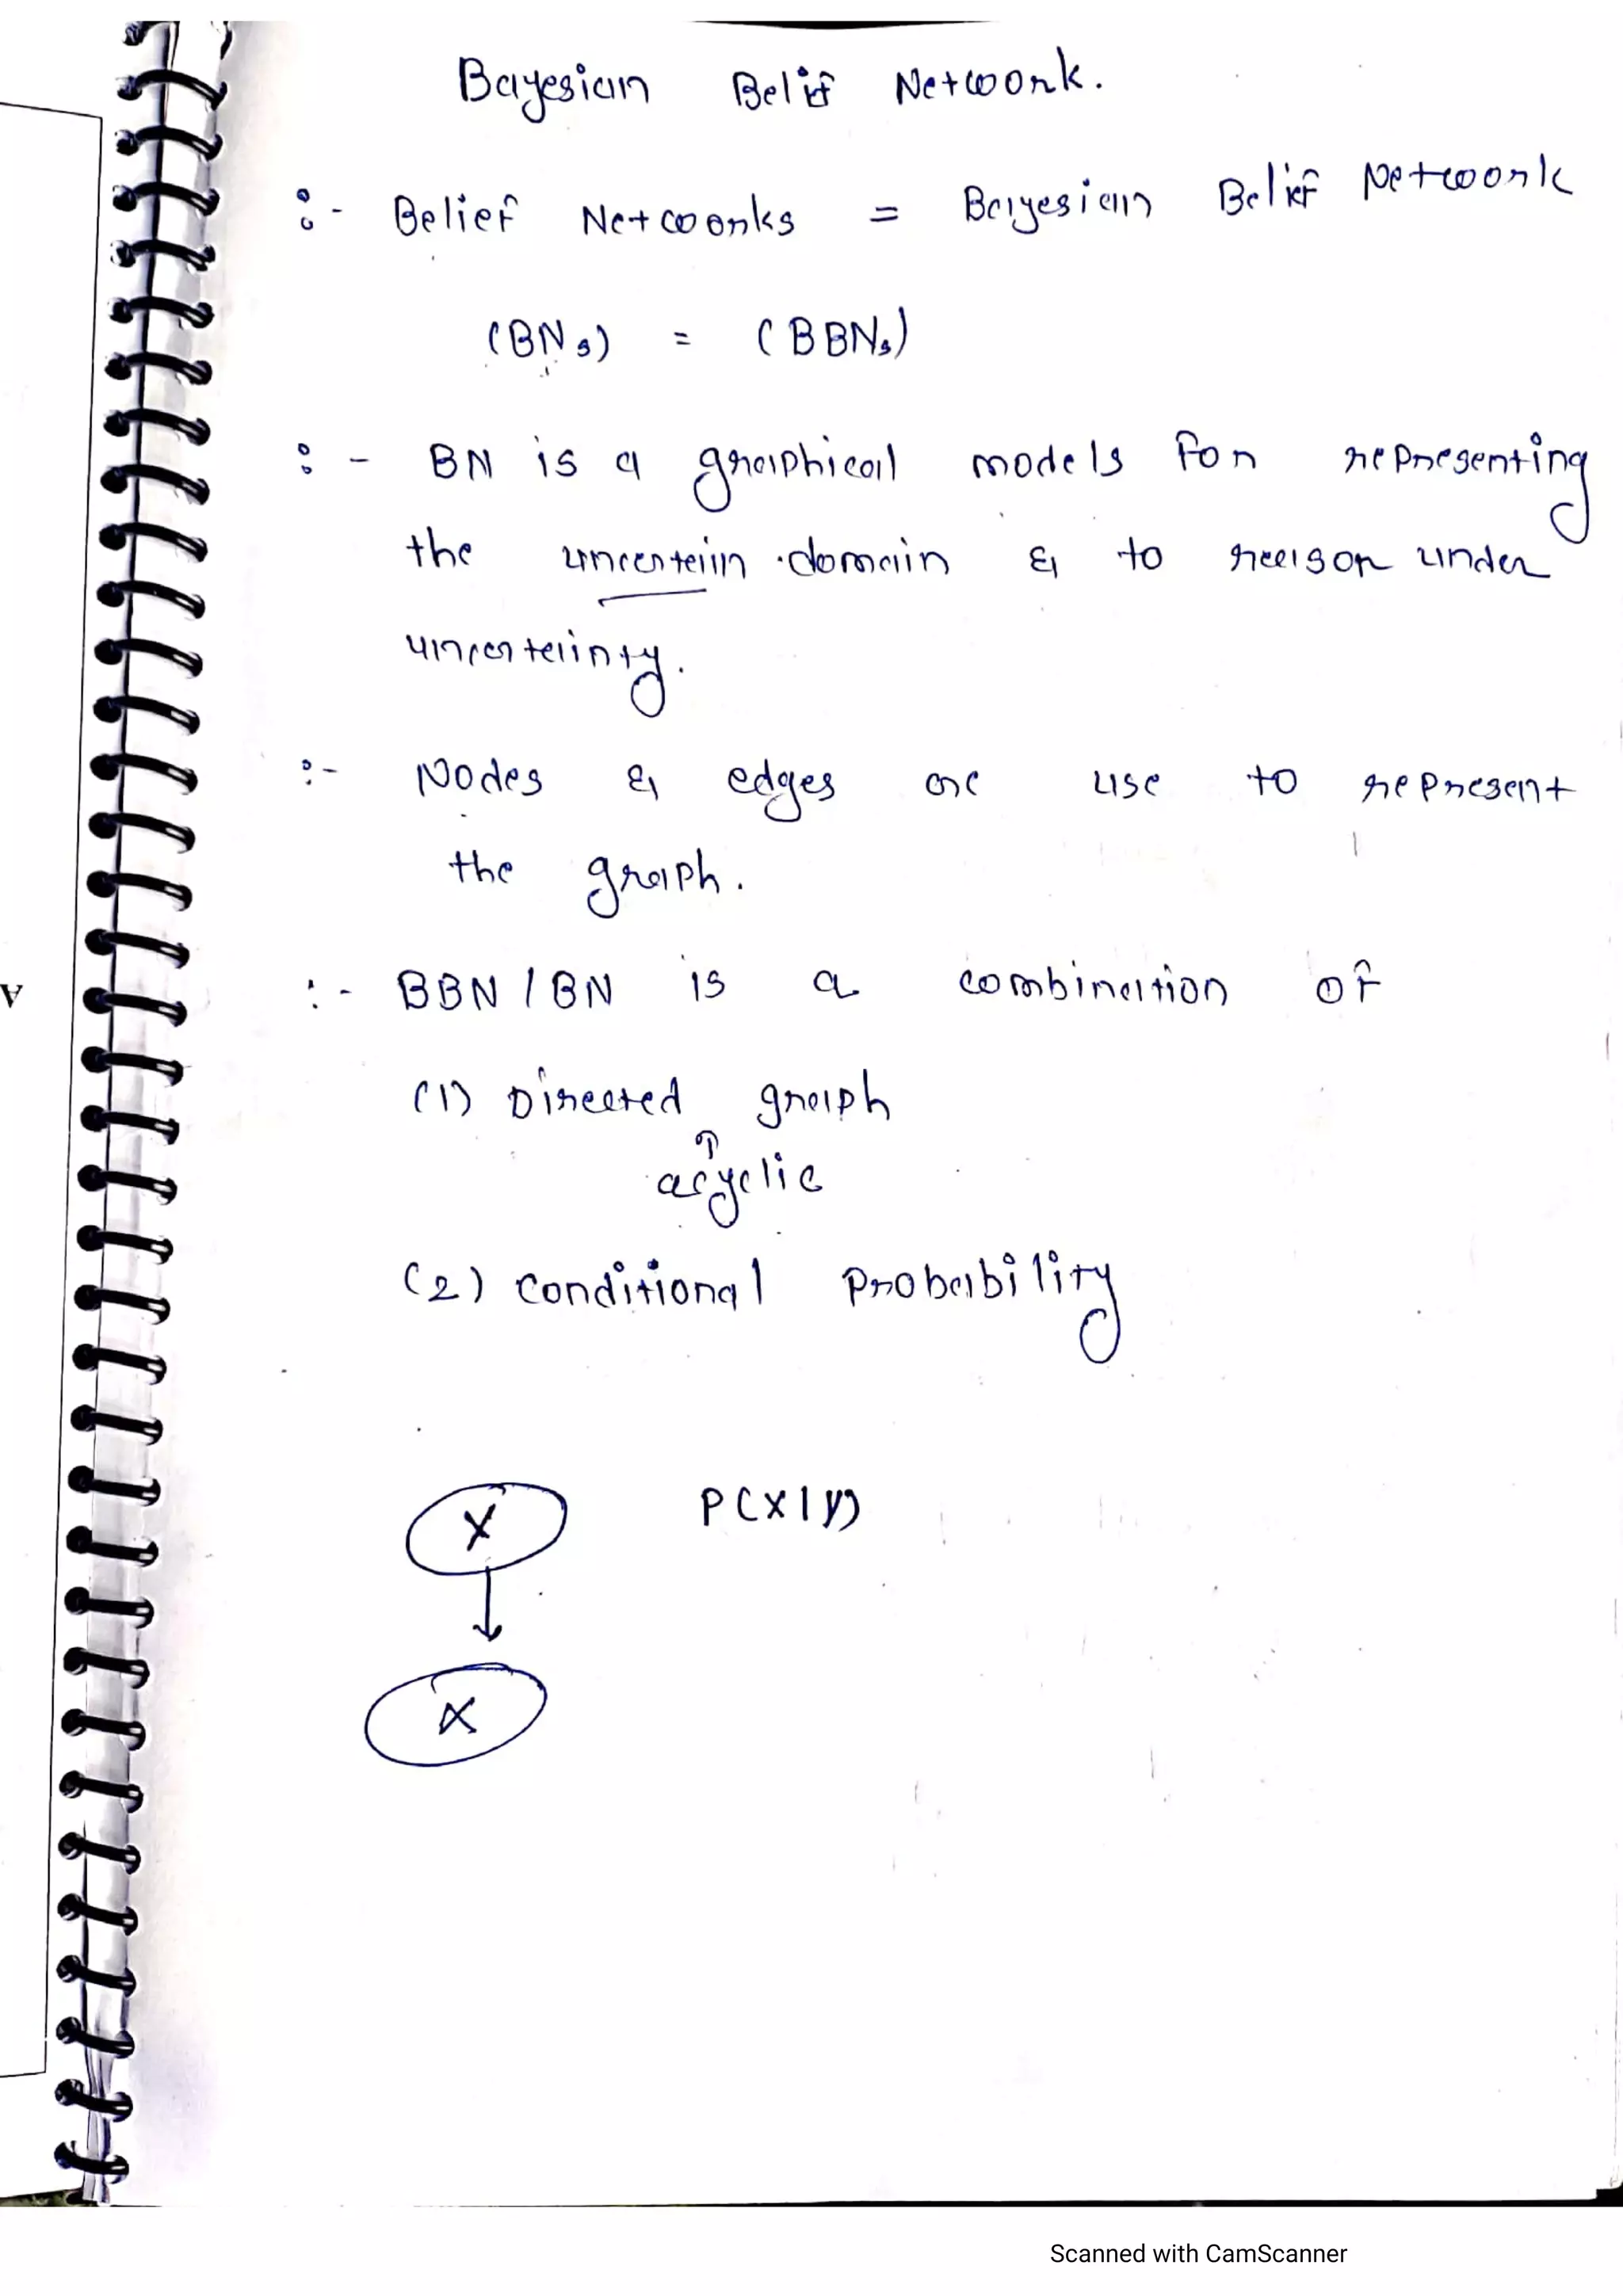 Bayesian Belif Network.
:- Belief Networks = Bayesian Belief Network
(BNs) = (BBNs)
:- BN is a graphical models for representing
the uncertain domain & to reason under
uncertainty.
:- Nodes & edges are use to represent
the graph.
V
:- BBN / BN is a combination of
(1) Directed graph
acyclic
(2) Conditional Probability
Y P(X|Y)
X
Scanned with CamScanner